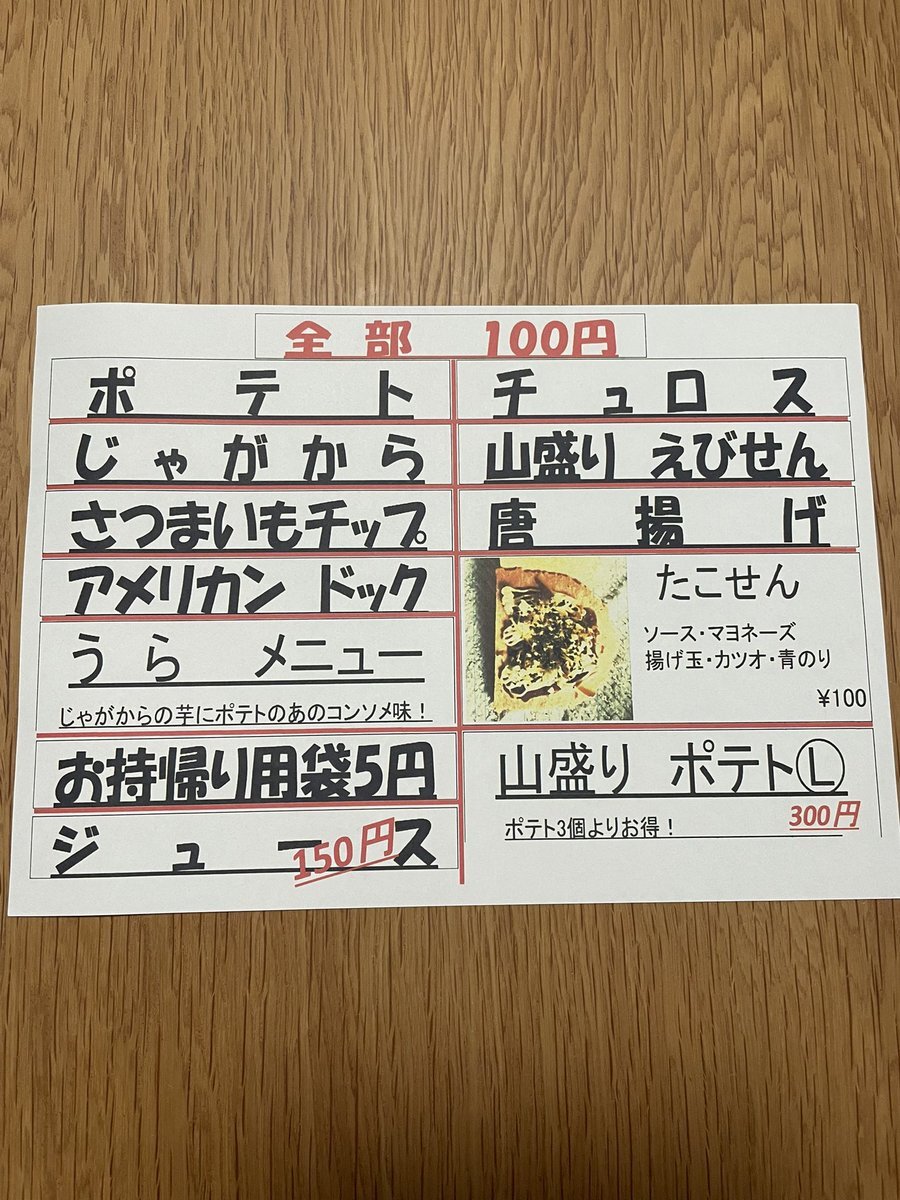 全部 100円
ポテト
じゃがから
さつまいもチップ
アメリカン ドック
うら メニュー
じゃがからの芋にポテトのあのコンソメ味！
お持帰り用袋5円
ジュース
150円
チュロス
山盛り えびせん
唐揚げ
たこせん
ソース・マヨネーズ
揚げ玉・カツオ・青のり
¥100
山盛り ポテトⓁ
300円
ポテト3個よりお得！